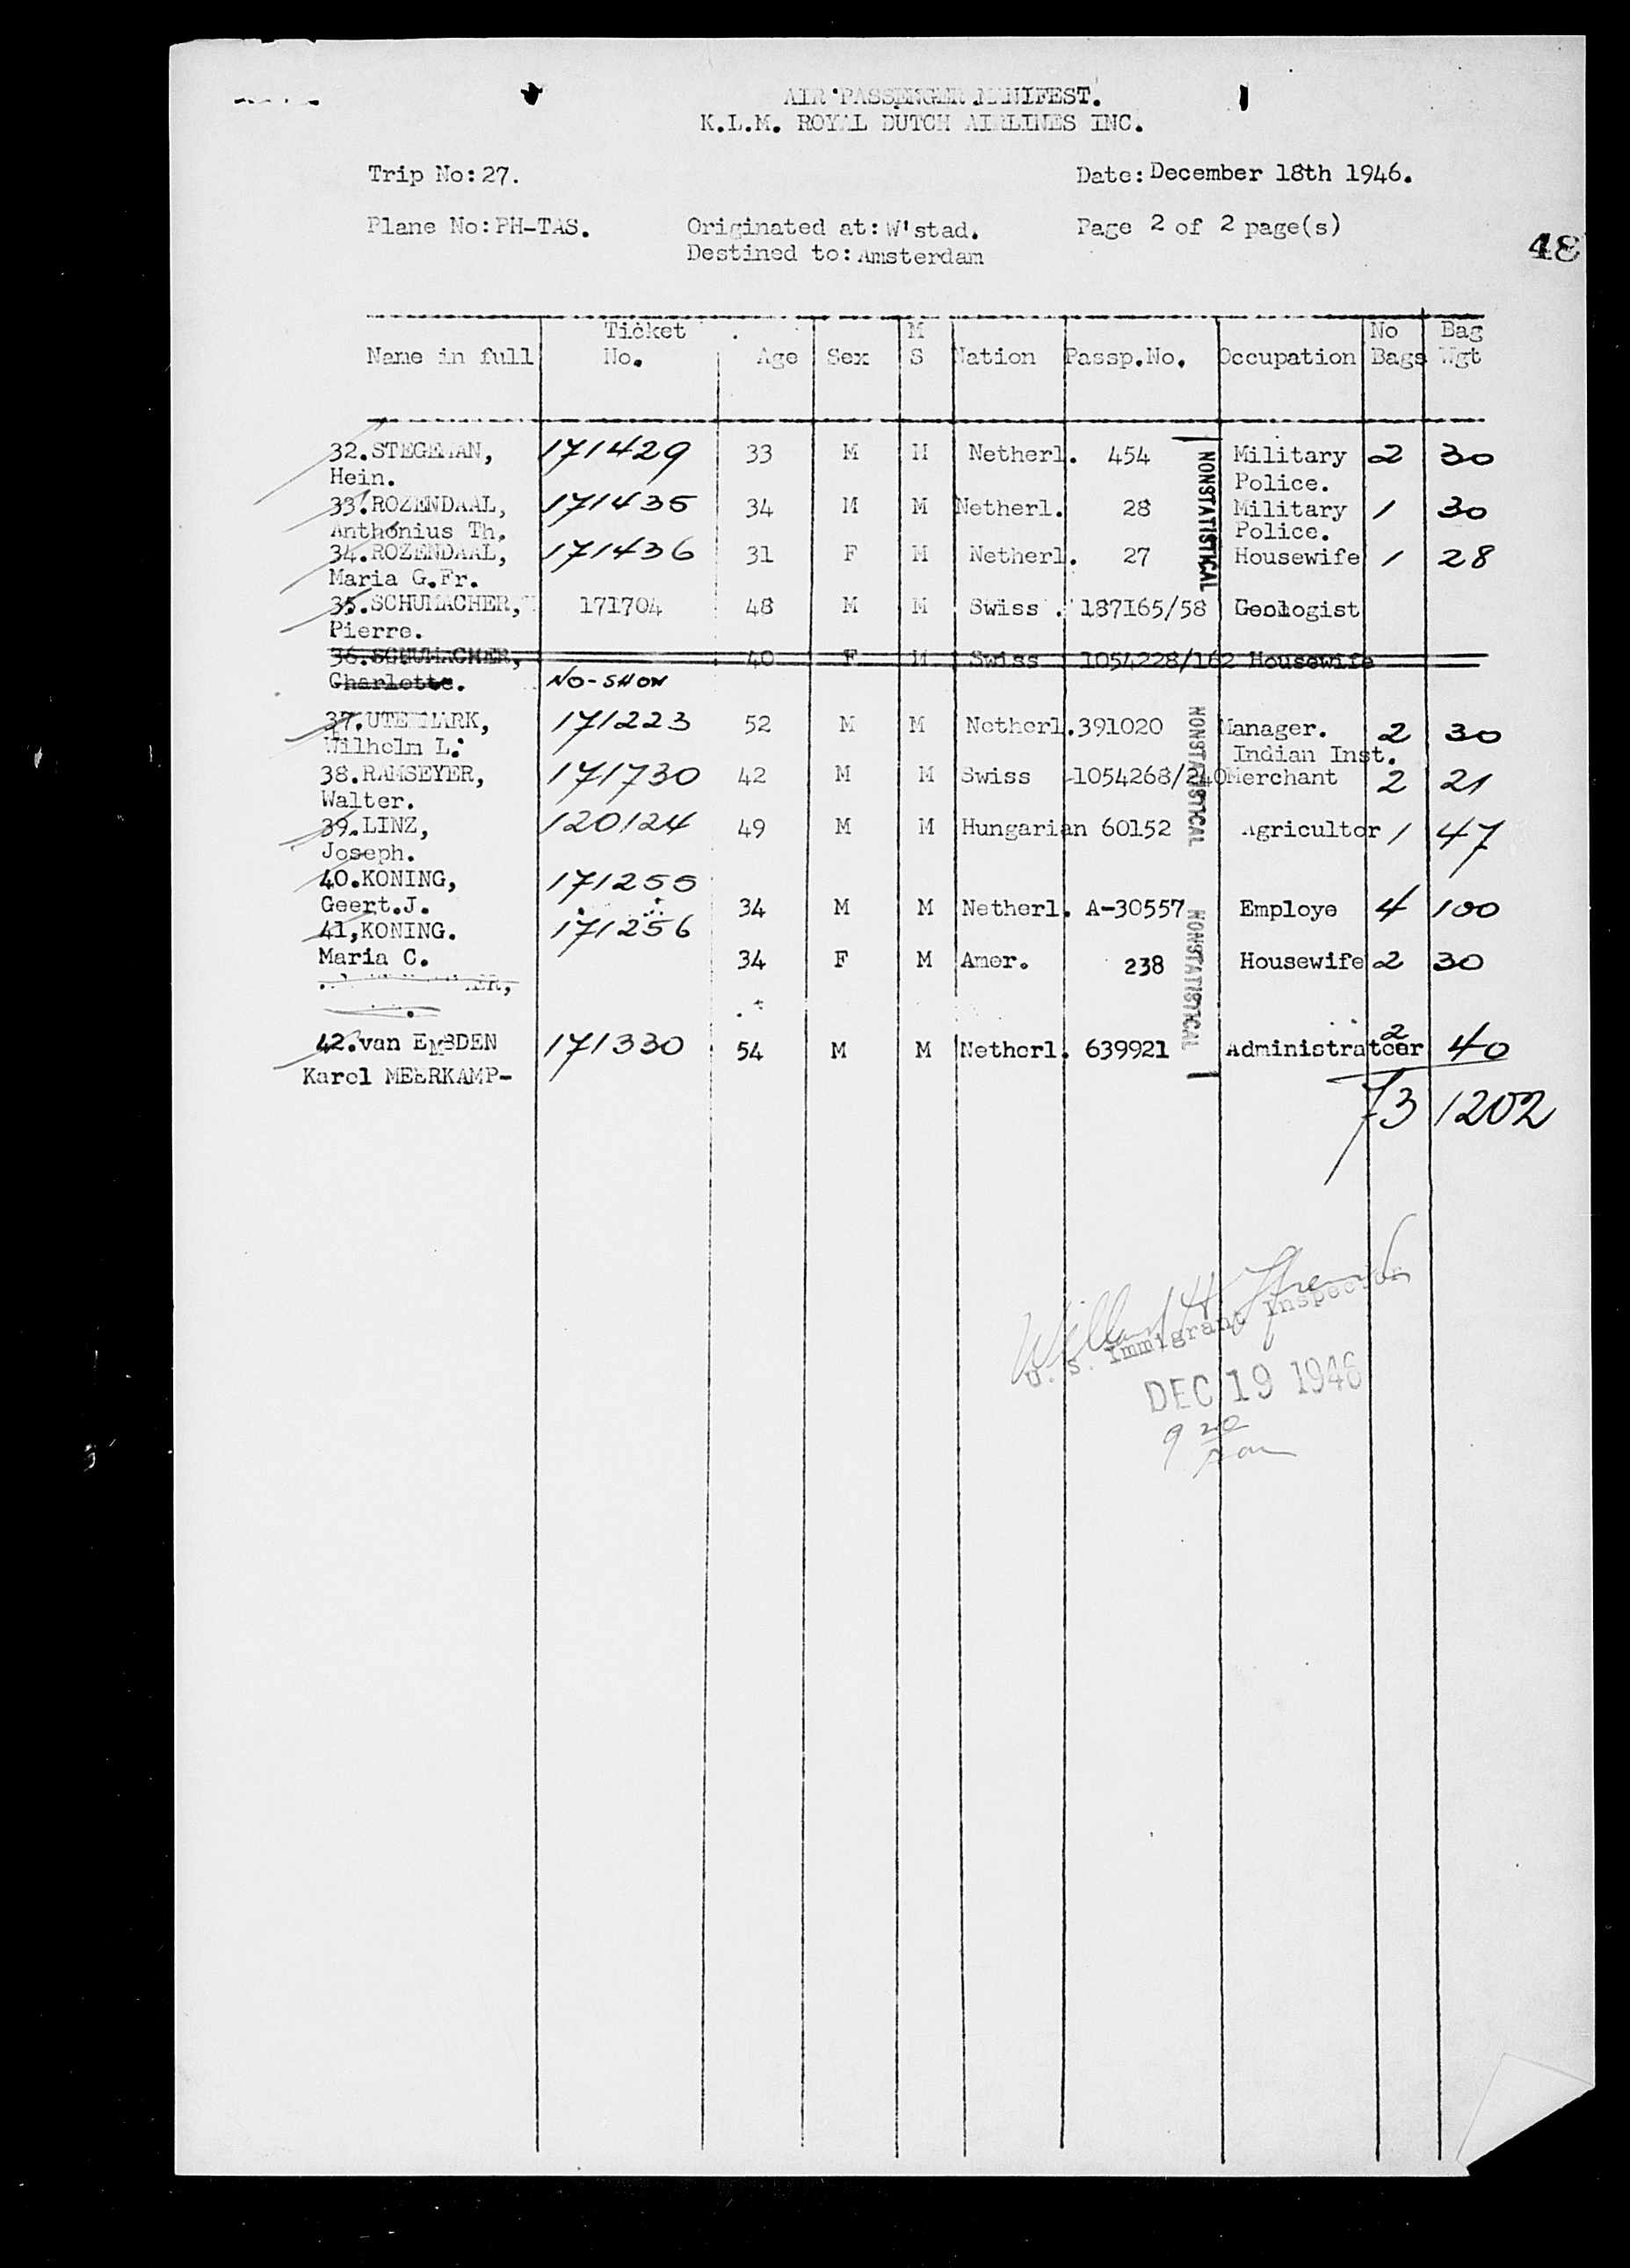 AIR PASSENGER MANIFEST.
K.L.M. ROYAL DUTCH AIRLINES INC.
Trip No: 27. Date: December 18th 1946.
Plane No: PH-TAS. Originated at: W'stad. Page 2 of 2 page(s)
Destined to: Amsterdam
48
Ticket M No Bag
Name in full No. Age Sex S Nation Passp.No. Occupation Bags Wgt
32.STEGEMAN, 171429 33 M M Netherl. 454 Military 2 30
Hein. Police.
33.ROZENDAAL, 171435 34 M M Netherl. 28 Military 1 30
Anthonius Th. Police.
34.ROZENDAAL, 171436 31 F M Netherl. 27 Housewife 1 28
Maria G.Fr.
NONSTATISTICAL
35.SCHUMACHER, 171704 48 M M Swiss . 187165/58 Geologist
Pierre.
36.SCHUMACHER, 40 F M Swiss 1054228/162 Housewife
Charlotte. NO-SHOW
37.UTERMARK, 171223 52 M M Netherl. 391020 Manager. 2 30
Wilhelm L. Indian Inst.
38.RAMSEYER, 171730 42 M M Swiss 1054268/240 Merchant 2 21
Walter.
NONSTATISTICAL
39.LINZ, 120124 49 M M Hungarian 60152 Agricultor 1 47
Joseph.
40.KONING, 171255
Geert.J. 34 M M Netherl. A-30557 Employe 4 100
41,KONING. 171256
Maria C. 34 F M Amer. 238 Housewife 2 30
NONSTATISTICAL
42.van EMBDEN 171330 54 M M Netherl. 639921 Administrateer 2 40
Karel MEERKAMP-
73 1202
U. S. Immigrant Inspector
DEC 19 1946
9 20